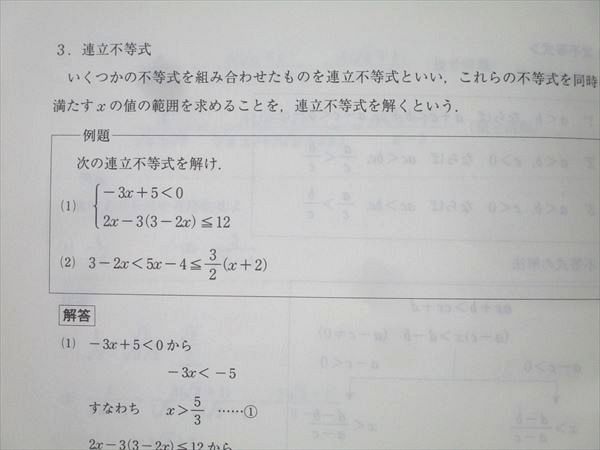 3. 連立不等式
いくつかの不等式を組み合わせたものを連立不等式といい，これらの不等式を同時
満たすxの値の範囲を求めることを，連立不等式を解くという．
例題
次の連立不等式を解け．
(1) { －3x＋5＜0
2x－3(3－2x)≦12
(2) 3－2x＜5x－4≦3/2(x＋2)
解答
(1) －3x＋5＜0から
－3x＜－5
すなわち x＞5/3 ……①
2x－3(3－2x)≦12から